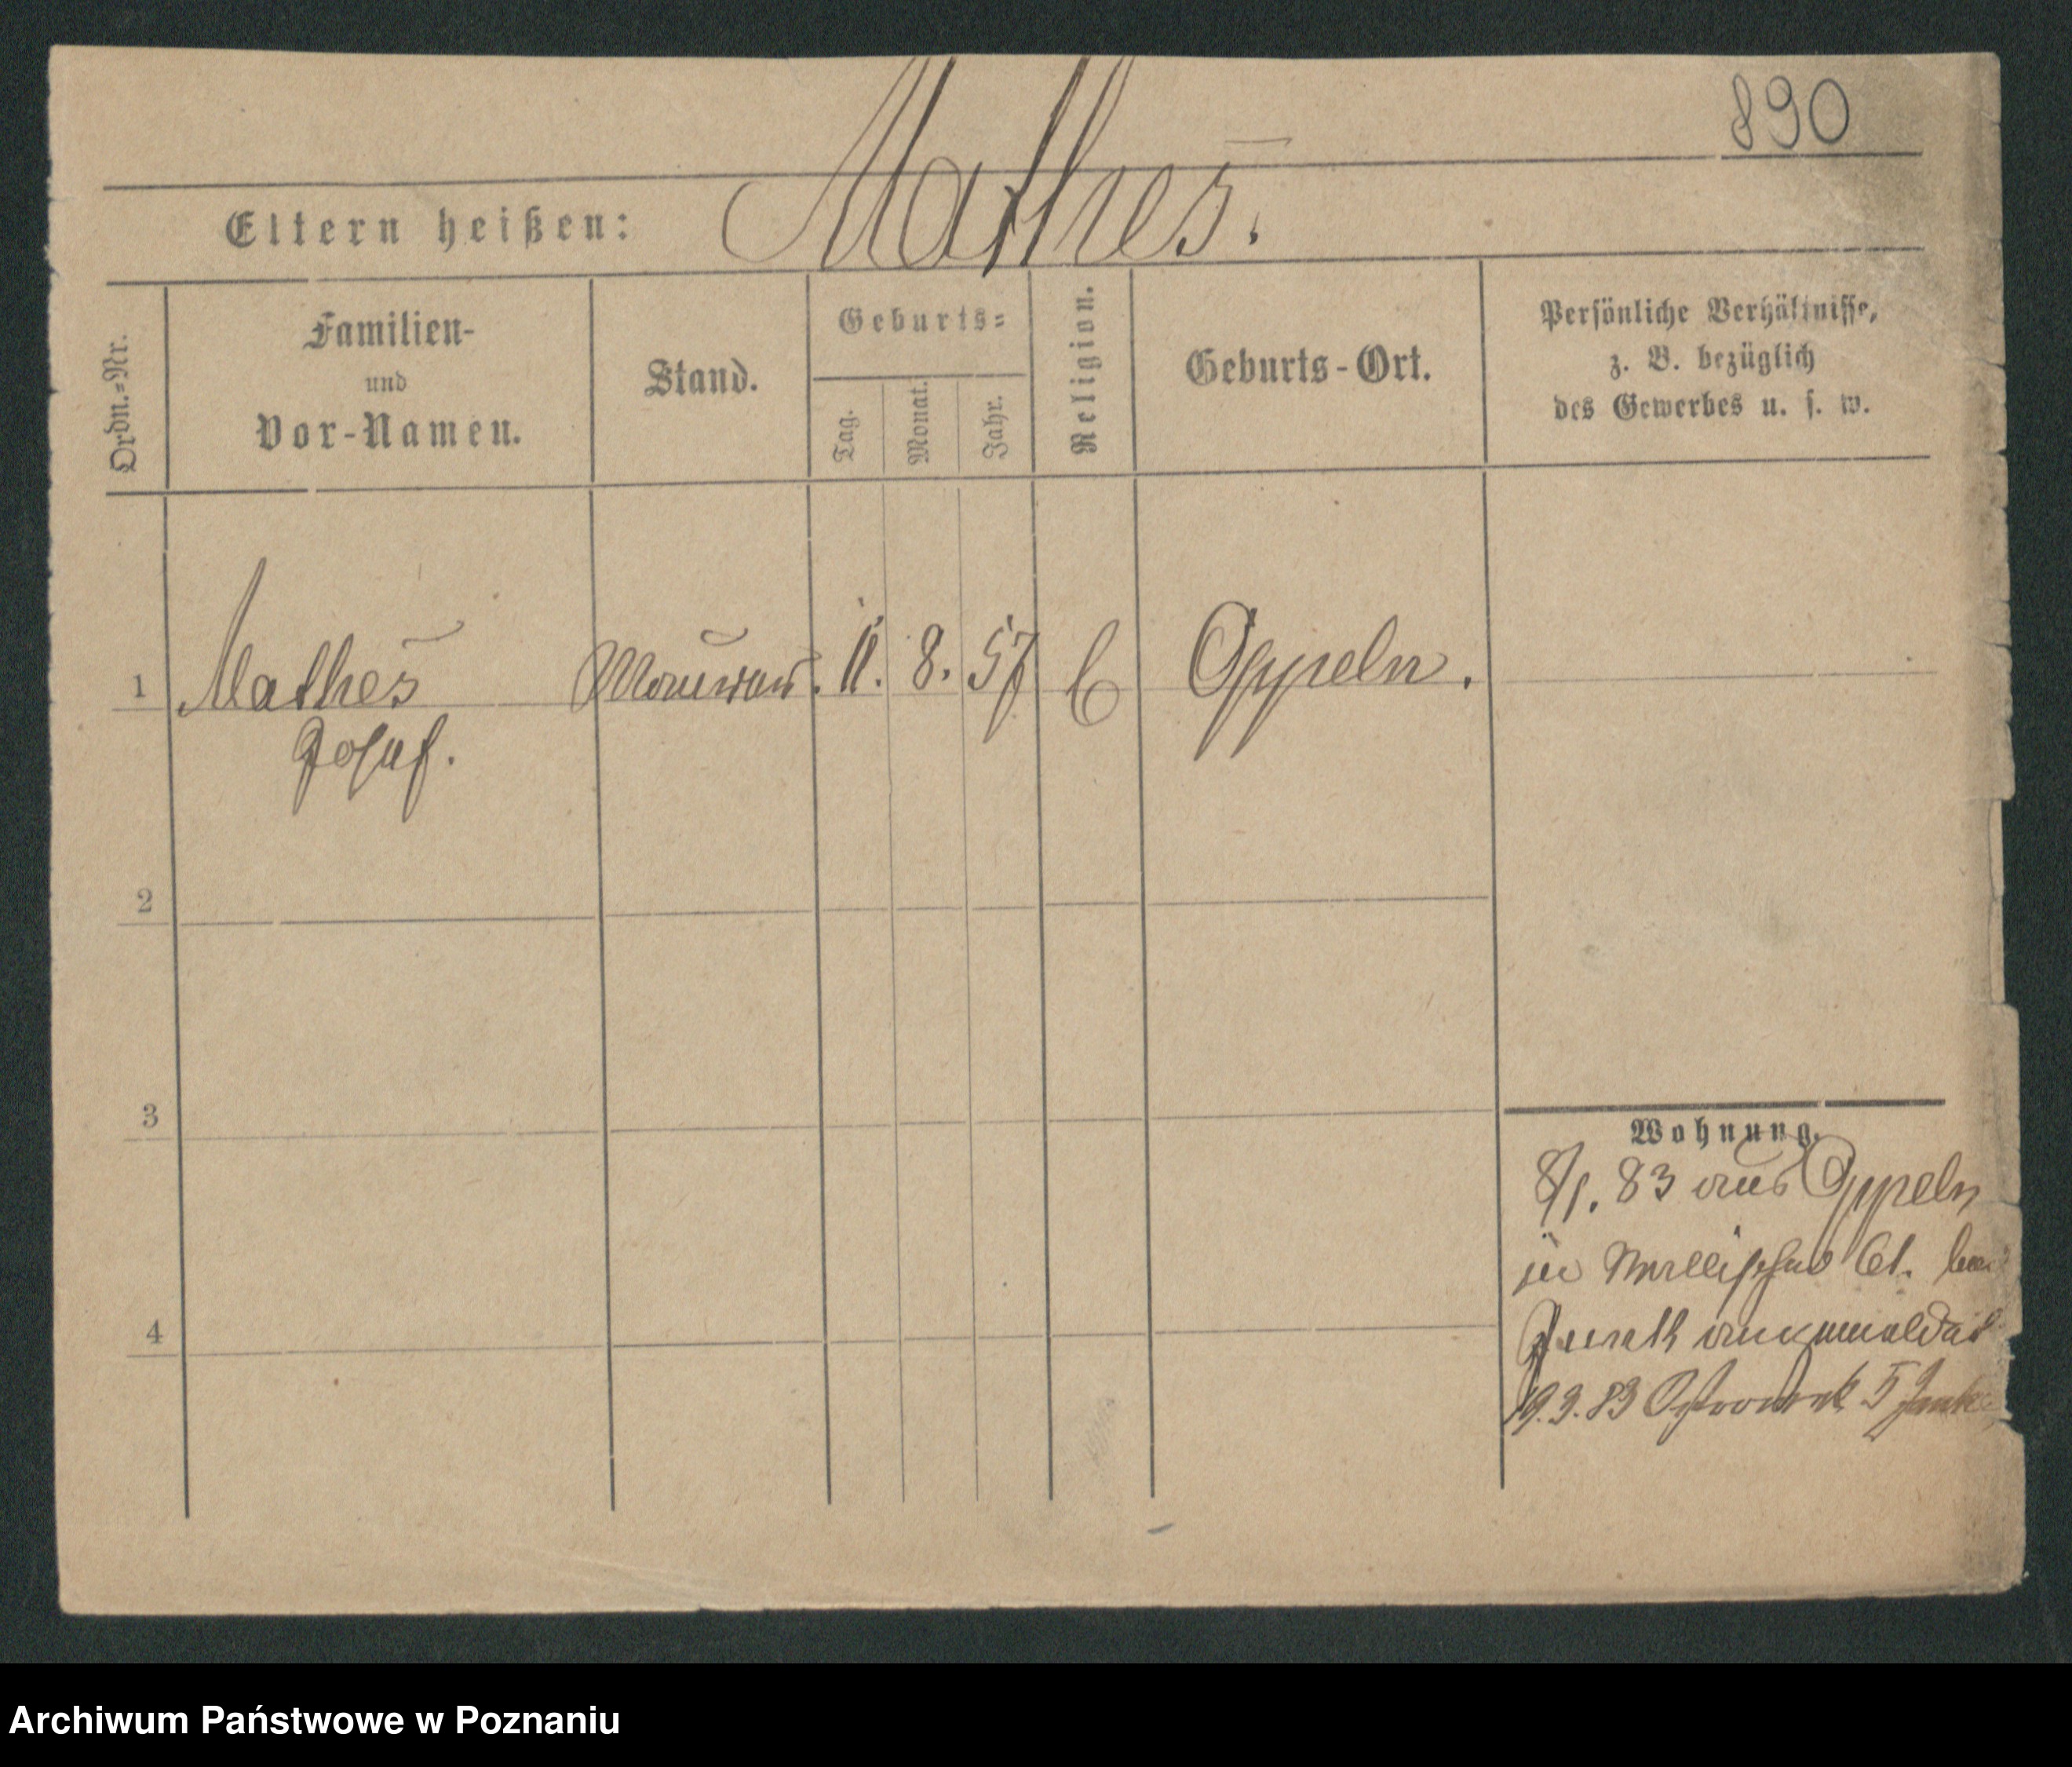 890
Eltern heißen: Mathes.
Ordn.=Nr.
Familien-
und
Vor-Namen.
Stand.
Geburts=
Tag.
Monat.
Jahr.
Religion.
Geburts-Ort.
Persönliche Verhältnisse,
z. B. bezüglich
des Gewerbes u. s. w.
1 Mathes Maurer. 11. 8. 57 C Oppeln.
Josef.
2
3
4
Wohnung.
8/1. 83 aus Oppeln
in Wallischei 61. bei
angemeldet
19.3.83 Ostrowek 5
Archiwum Państwowe w Poznaniu